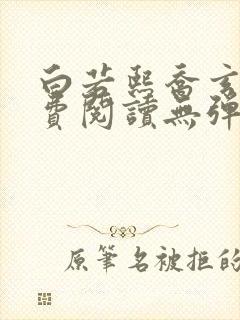 白若熙喬玄
費閱讀無彈
原筆名被拒的